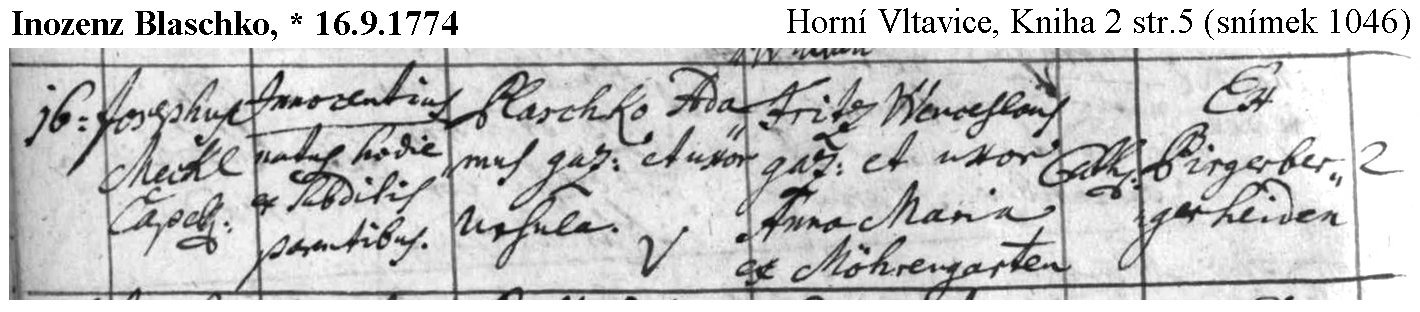 Inozenz Blaschko, * 16.9.1774
Horní Vltavice, Kniha 2 str.5 (snímek 1046)
16: Josephus Innocentius Blaschko Ada Fritz Wenceslaus Ex
Meckl natus hodie mus gaz: et uxor gaz: et uxor Cath: Birgerber„ 2
Capell: ex subditis Ursula. Anna Maria gerheiden
parentibus. V ex Möhrengarten